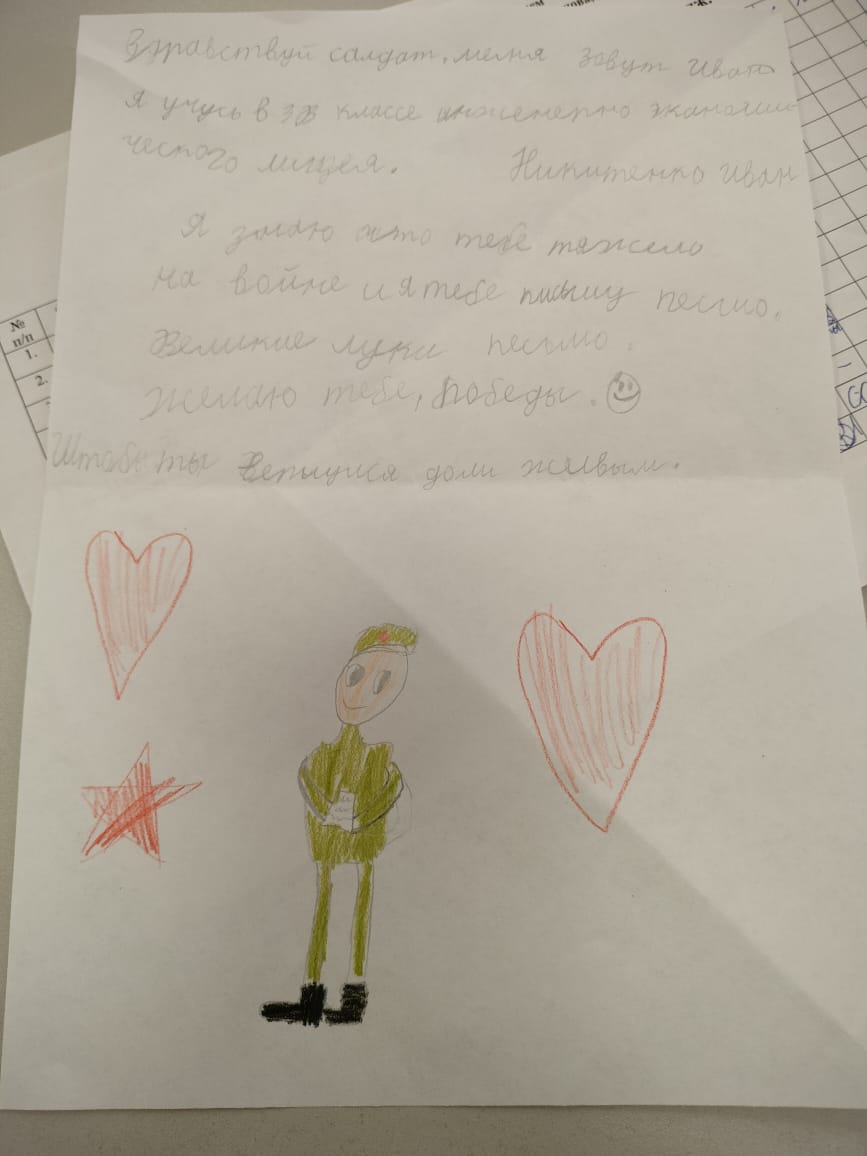 Здравствуй салдат, меня завут Иван
я учусь в 3в классе инженерно эканоми-
ческого лицея. Никитенко Иван
Я знаю что тебе тяжело
на войне и я тебе пишу песмо.
Великие луки песьмо.
Желаю тебе, Победы.
Штобы ты домй живым.
№
п/п
1.
2.